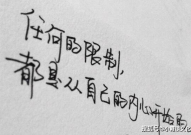 任何的限制，
都是从自己的内心开始的